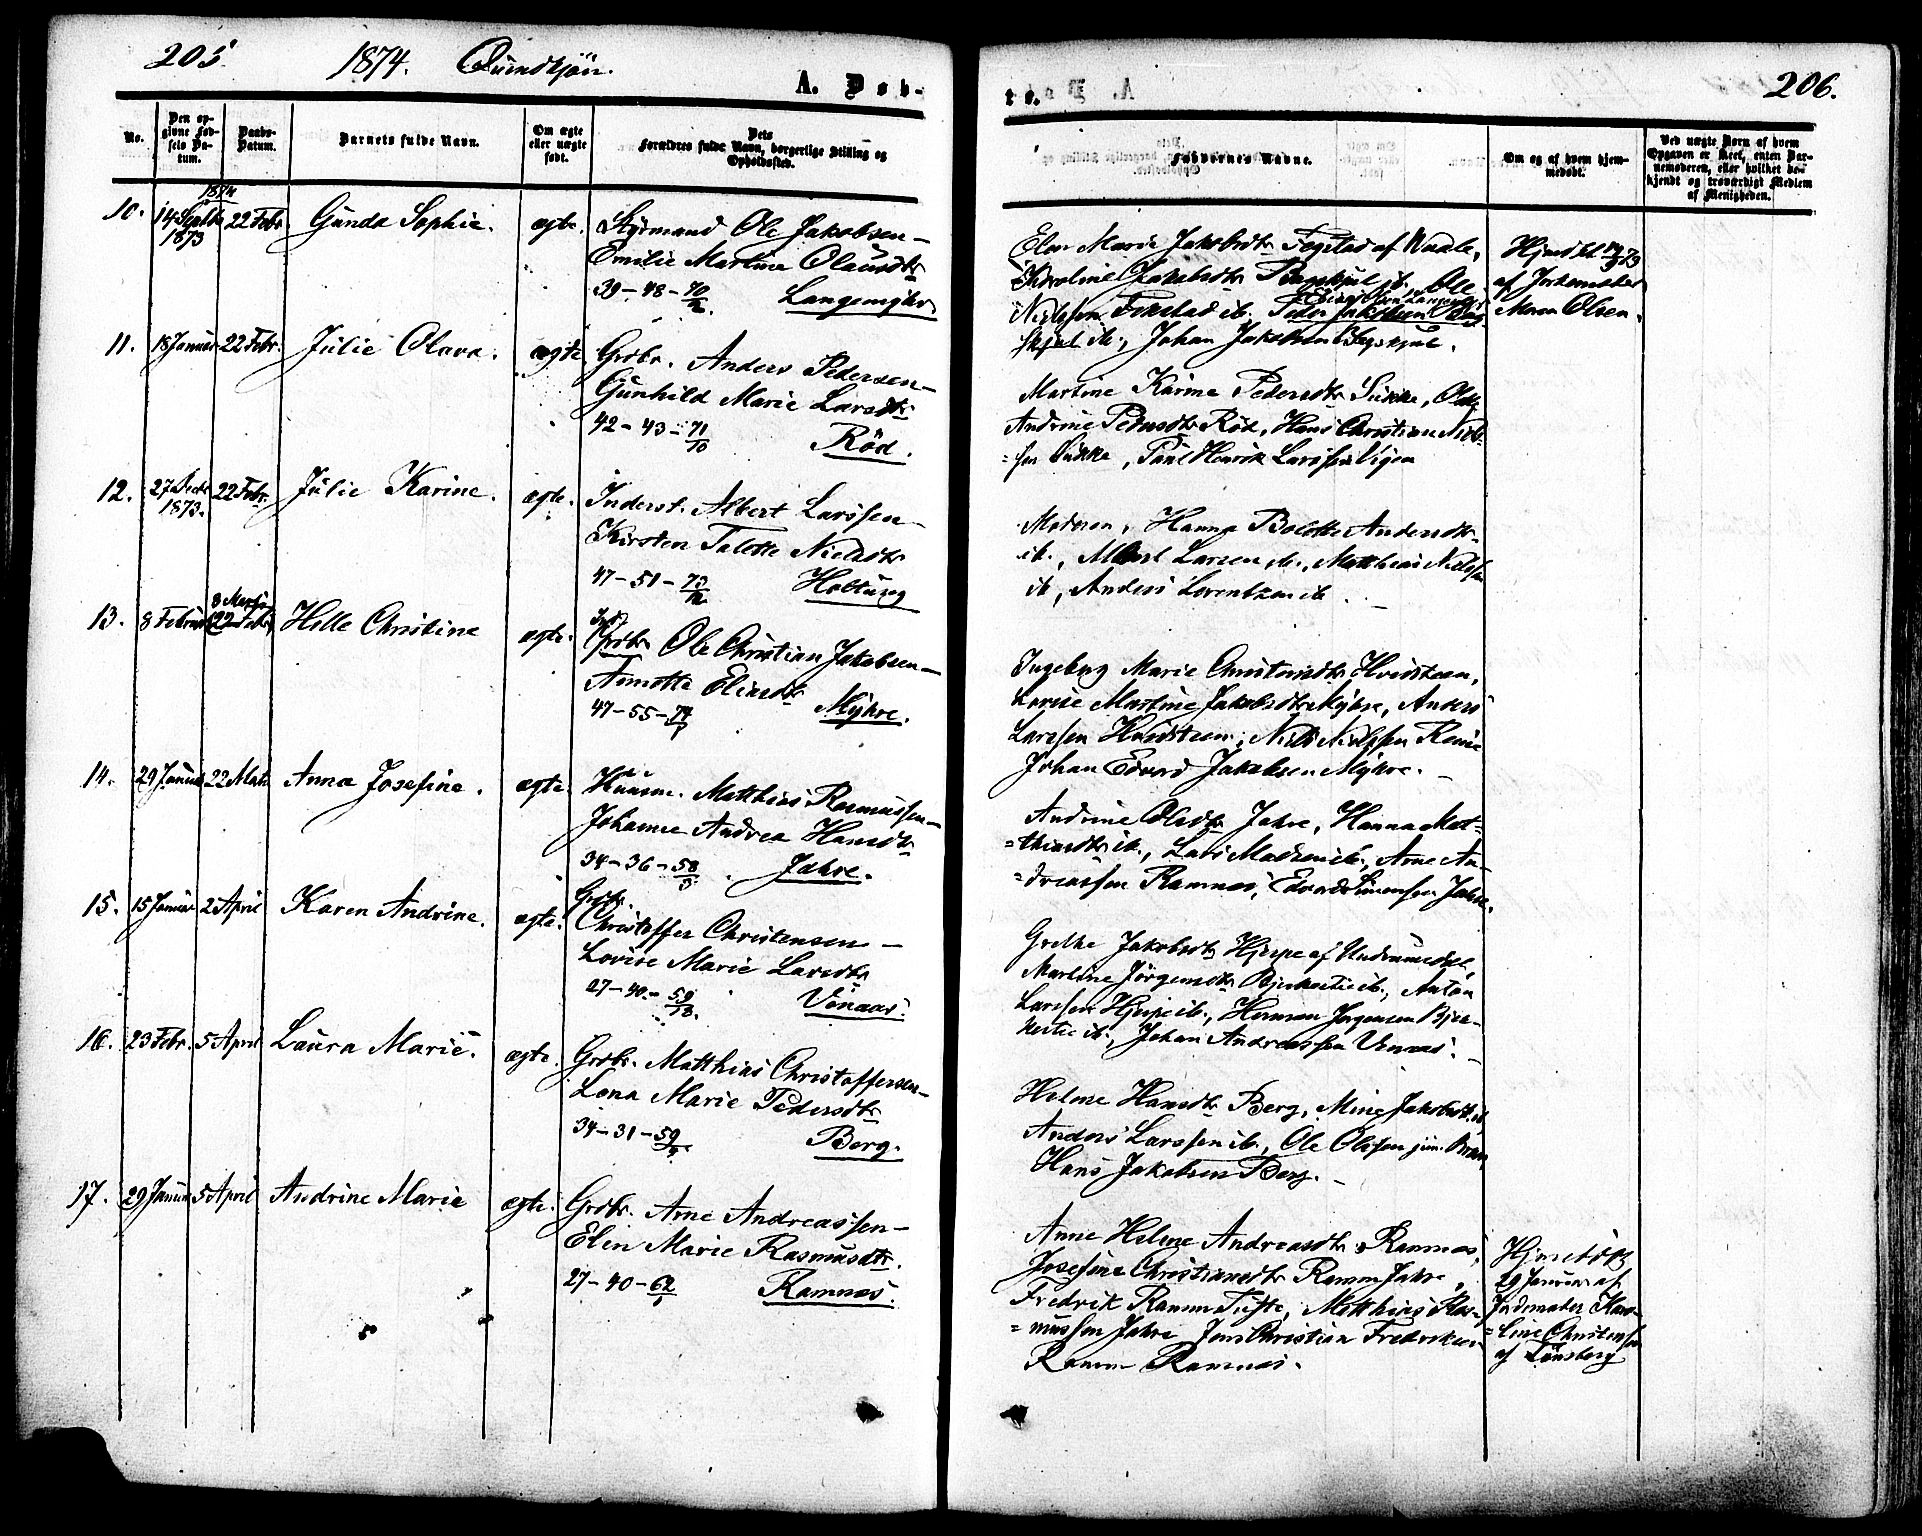 205.
1874. Quindkjön.
A. Døb-
No.
Den opgivne Fødsels Datum.
Daabs-Datum.
Barnets fulde Navn.
Om ægte eller uægte født.
Dets Forældres fulde Navn, borgerlige Stilling og Opholdssted.
10. 1873 1874 22 Febr. Gunda Sophie. ægte. Styrmand Ole Jakobsen –
Emilie Martine Olausdtr
39 – 48 – 70/12. Langemyhr
11. 18 Januar 22 Febr. Julie Olava. ægte Grdbr. Anders Pedersen –
Gunhild Marie Larsdtr
42 – 43 – 71/10 Röd.
12. 27 Decbr 1873. 22 Febr. Julie Karine. ægte. Inderst. Albert Larssen –
Kirsten Talette Nielsdtr
47 – 51 – 73/12 Holtung
13. 8 Februar 8 Marts 22 Febr. Helle Christine ægte. Grdbr. Ole Christian Jakobsen –
Annette Eliasdtr
47 – 55 – 74/1 Myhre.
14. 29 Januar 22 Marts Anna Josefine. ægte. Huusm. Matthias Rasmussen –
Johanne Andrea Hansdtr
34 – 36 – 58/3. Jahre.
15. 15 Januar 2 April Karen Andrine. ægte. Grdbr.
Christoffer Christensen –
Lovise Marie Larsdtr
27 – 40 – 59/12. Venaas.
16. 23 Febr. 5 April Laura Marie. ægte. Grdbr. Matthias Christoffersen –
Lena Marie Pedersdtr
34 – 31 – 59/4. Berg.
17. 29 Januar 5 April Andrine Marie ægte. Grdbr. Arne Andreassen –
Elen Marie Rasmusdtr.
27 – 40 – 62/1 Ramnæs.
te.
206.
Faddernes Navne.
Om og af hvem hjemmedøbt.
Ved uægte Børn af hvem Opgaven er skeet, enten Barnemoderen, eller hvilket bekjendt og troværdigt Medlem af Menigheden.
Elen Marie Jakobsdtr af Vaale,
Karoline Jakobsdtr ib. Ole
Nielssen ib. Peder Jakobsen
ib., Johan Jakobsen
Hjmdbt
af Jordemoder
Maren Olsen.
Martine Karine Pedersdtr Sukke,
Andrine Pedersdtr Röd, Hans Christian Niel-
sen Sukke, Paul Henrik Larssen
Moderen, Hanna Bolette Andersdtr
ib., Larsen ib., Matthias Nielssen
ib, Anders Lorentzen ib.
Ingeborg Marie Hvidsteen,
Martine Jakobsdtr Myhre, Anders
Larssen Hvidsteen, Niels Nielssen
Johan Edvard Jakobsen Myhre.
Andrine Olsdtr Jahre, Hanna Mat-
=thiasdtr ib., Lars Madsen ib., Arne An-
=dreassen Ramnæs, Edvard Simensen Jahre.
Grethe Jakobsdtr Hjerpe af Undrumsdal
Martine Jörgensdtr ib., Anton
Larssen Hjerpe ib., Herman Jörgensen
ib., Johan Andreassen Venaas.
Helene Hansdtr Berg, Mine Jakobsdtr. ib
Anders Larssen ib., Ole Olssen jun.
Hans Jakobsen Berg.
Anne Helene Andreasdtr Ramnæs,
Josefine Christiansdtr Jahre,
Fredrik Ramm Tufte, Matthias Ras-
=mussen Jahre Jens Christian Fredriksen
Ramm Ramnæs.
Hjmdöbt
29 Januar af
Jordmoder Karo-
=line Christensen
af Tönsberg